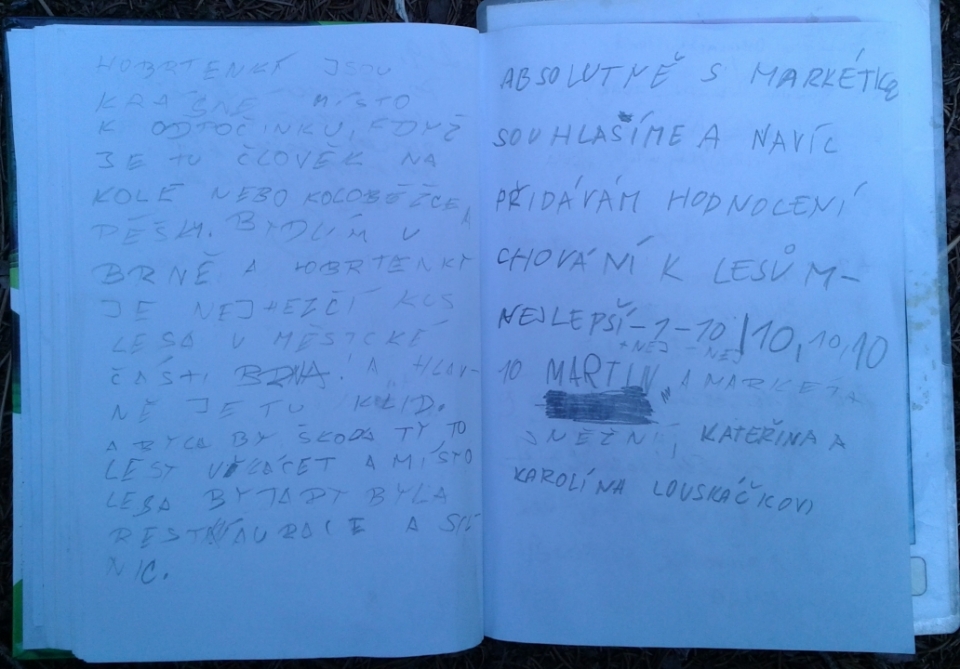 HOBRTENKI JSOU
KRÁSNÉ MÍSTO
K ODTOČINKU, KDYŽ
JE TU ČLOVĚK NA
KOLE NEBO KOLOBĚŽCE, A
PĚŠKI. BYDLÍM V
BRNĚ, A HOBRTENKY
JE NEJHEZČÍ KUS
LESA V MĚSTCKÉ
ČÁSTI BRNA! A HLAV-
NĚ JE TU KLID.
A BYLA BY ŠKODA TY TO
LESY VYKÁCET A MÍSTO
LESA BY TADY BYLA
RESTAURACE A SIL
NIC.
ABSOLUTNĚ S MARKÉTKOU
SOUHLASÍME A NAVÍC
PŘIDÁVÁM HODNOCENÍ
CHOVÁNÍ K LESŮM-
NEJLEPŠÍ-1-10/10, 10, 10
+NEJ -NEJ
10 MARTIN, A MARKETA
SNĚŽNÍ, KATEŘINA A
KAROLÍNA LOUSKÁČKOVI